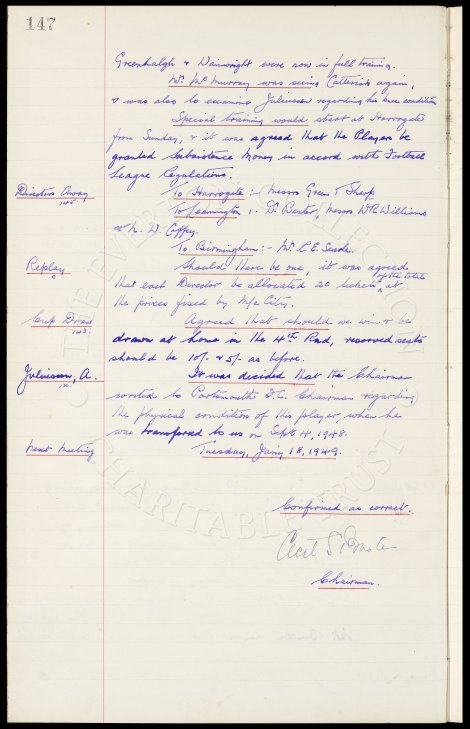 147
Greenhalgh & Wainwright were now in full training.
Mr. McMurray was seeing Catterick again,
& was also to examine Juliussen regarding his knee condition
Special training would start at Harrogate
from Sunday, & it was agreed that the Player be
granted Subsistence Money in accord with Football
League Regulations.
Directors Away
To Harrogate :- Messrs Green & Sharp
To Leamington :- Dr Baxter, Messrs W.R. Williams
& N. W. Coffey.
To Birmingham :- Mr. C.E. Searle.
Replay
Should there be one, it was agreed
that each Director be allocated 20 tickets at
the prices fixed by M/c City.
Cup Draw
Agreed that should we win & be
drawn at home in the 4th Rnd, reserved seats
should be 10/- & 5/- as before.
Juliussen, A.
It was decided that the Chairman
to Portsmouth F.C. Chairman regarding
the physical condition of this player, when he
was transferred to us on Sept 4, 1948.
Next Meeting
Tuesday, Jany 18, 1949.
Confirmed as correct.
Cecil S. Baxter
Chairman.
THE EVERTON COLLECTION
CHARITABLE TRUST